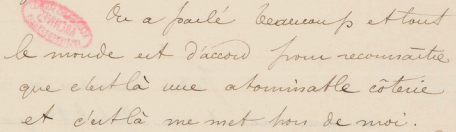 On a parlé beaucoup et tout
le monde est d'accord pour reconnaître
que c'est là une abominable côterie
et c'est là me met hors de moi.